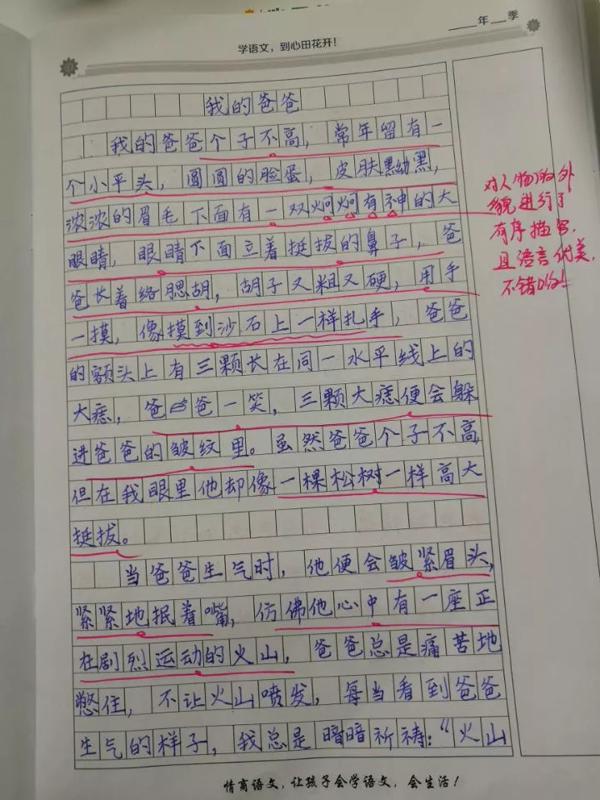 学语文，到心田花开！
年 季
我的爸爸
我的爸爸个子不高，常年留有一
个小平头，圆圆的脸蛋，皮肤黝黑，
浓浓的眉毛下面有一双炯炯有神的大
眼睛，眼睛下面立着挺拔的鼻子，爸
爸长着络腮胡，胡子又粗又硬，用手
一摸，像摸到沙石上一样扎手，爸爸
的额头上有三颗长在同一水平线上的
大痣，爸爸一笑，三颗大痣便会躲
进爸爸的皱纹里。虽然爸爸个子不高
但在我眼里他却像一棵松树一样高大
挺拔。
当爸爸生气时，他便会皱紧眉头，
紧紧地抿着嘴，仿佛他心中有一座正
在剧烈运动的火山，爸爸总是痛苦地
憋住，不让火山喷发，每当看到爸爸
生气的样子，我总是暗暗祈祷：“火山
对人物的外
貌进行了
有序描写，
且语言优美，
不错哟！
情商语文，让孩子会学语文，会生活！